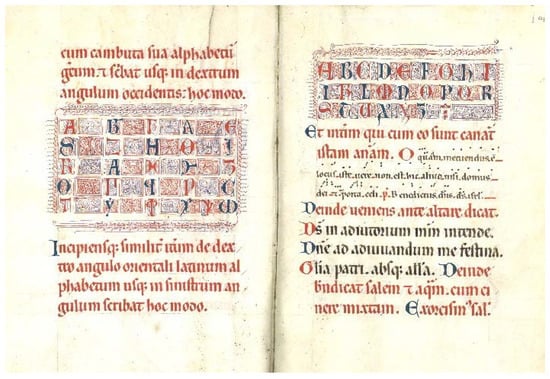 cum cambuta sua alphabetū
grecum ⁊ scˀbat usqʒ in dextrum
angulum occidentis: hoc modo.
Incipiensqʒ similitˀ itˀum de dex
tro angulo orientali latinum al
phabetum usqʒ in sinistrum an
gulum scribat hoc modo.
A B C D E F G H I
K L M N O P Q R
S T U X Y Z
Et itˀum qui cum eo sunt canāt
istam anām. O quam. metuendus. e
locus. iste. vere. non. est. hic. aliud. nisi. domus.
dei ⁊ porta. celi. p. Benedictus. dn̄s. ds. isrl.
Deinde veniens ante altare dicat.
Ds̄ in adiutorium mm̄ intende.
Dn̄e ad adiuvandum me festina.
Glīa patri. absqʒ all'a. Deinde
bn̄dicat salem ⁊ aqm̄. cum ci
nere mixtum. Exorcism' sal'.